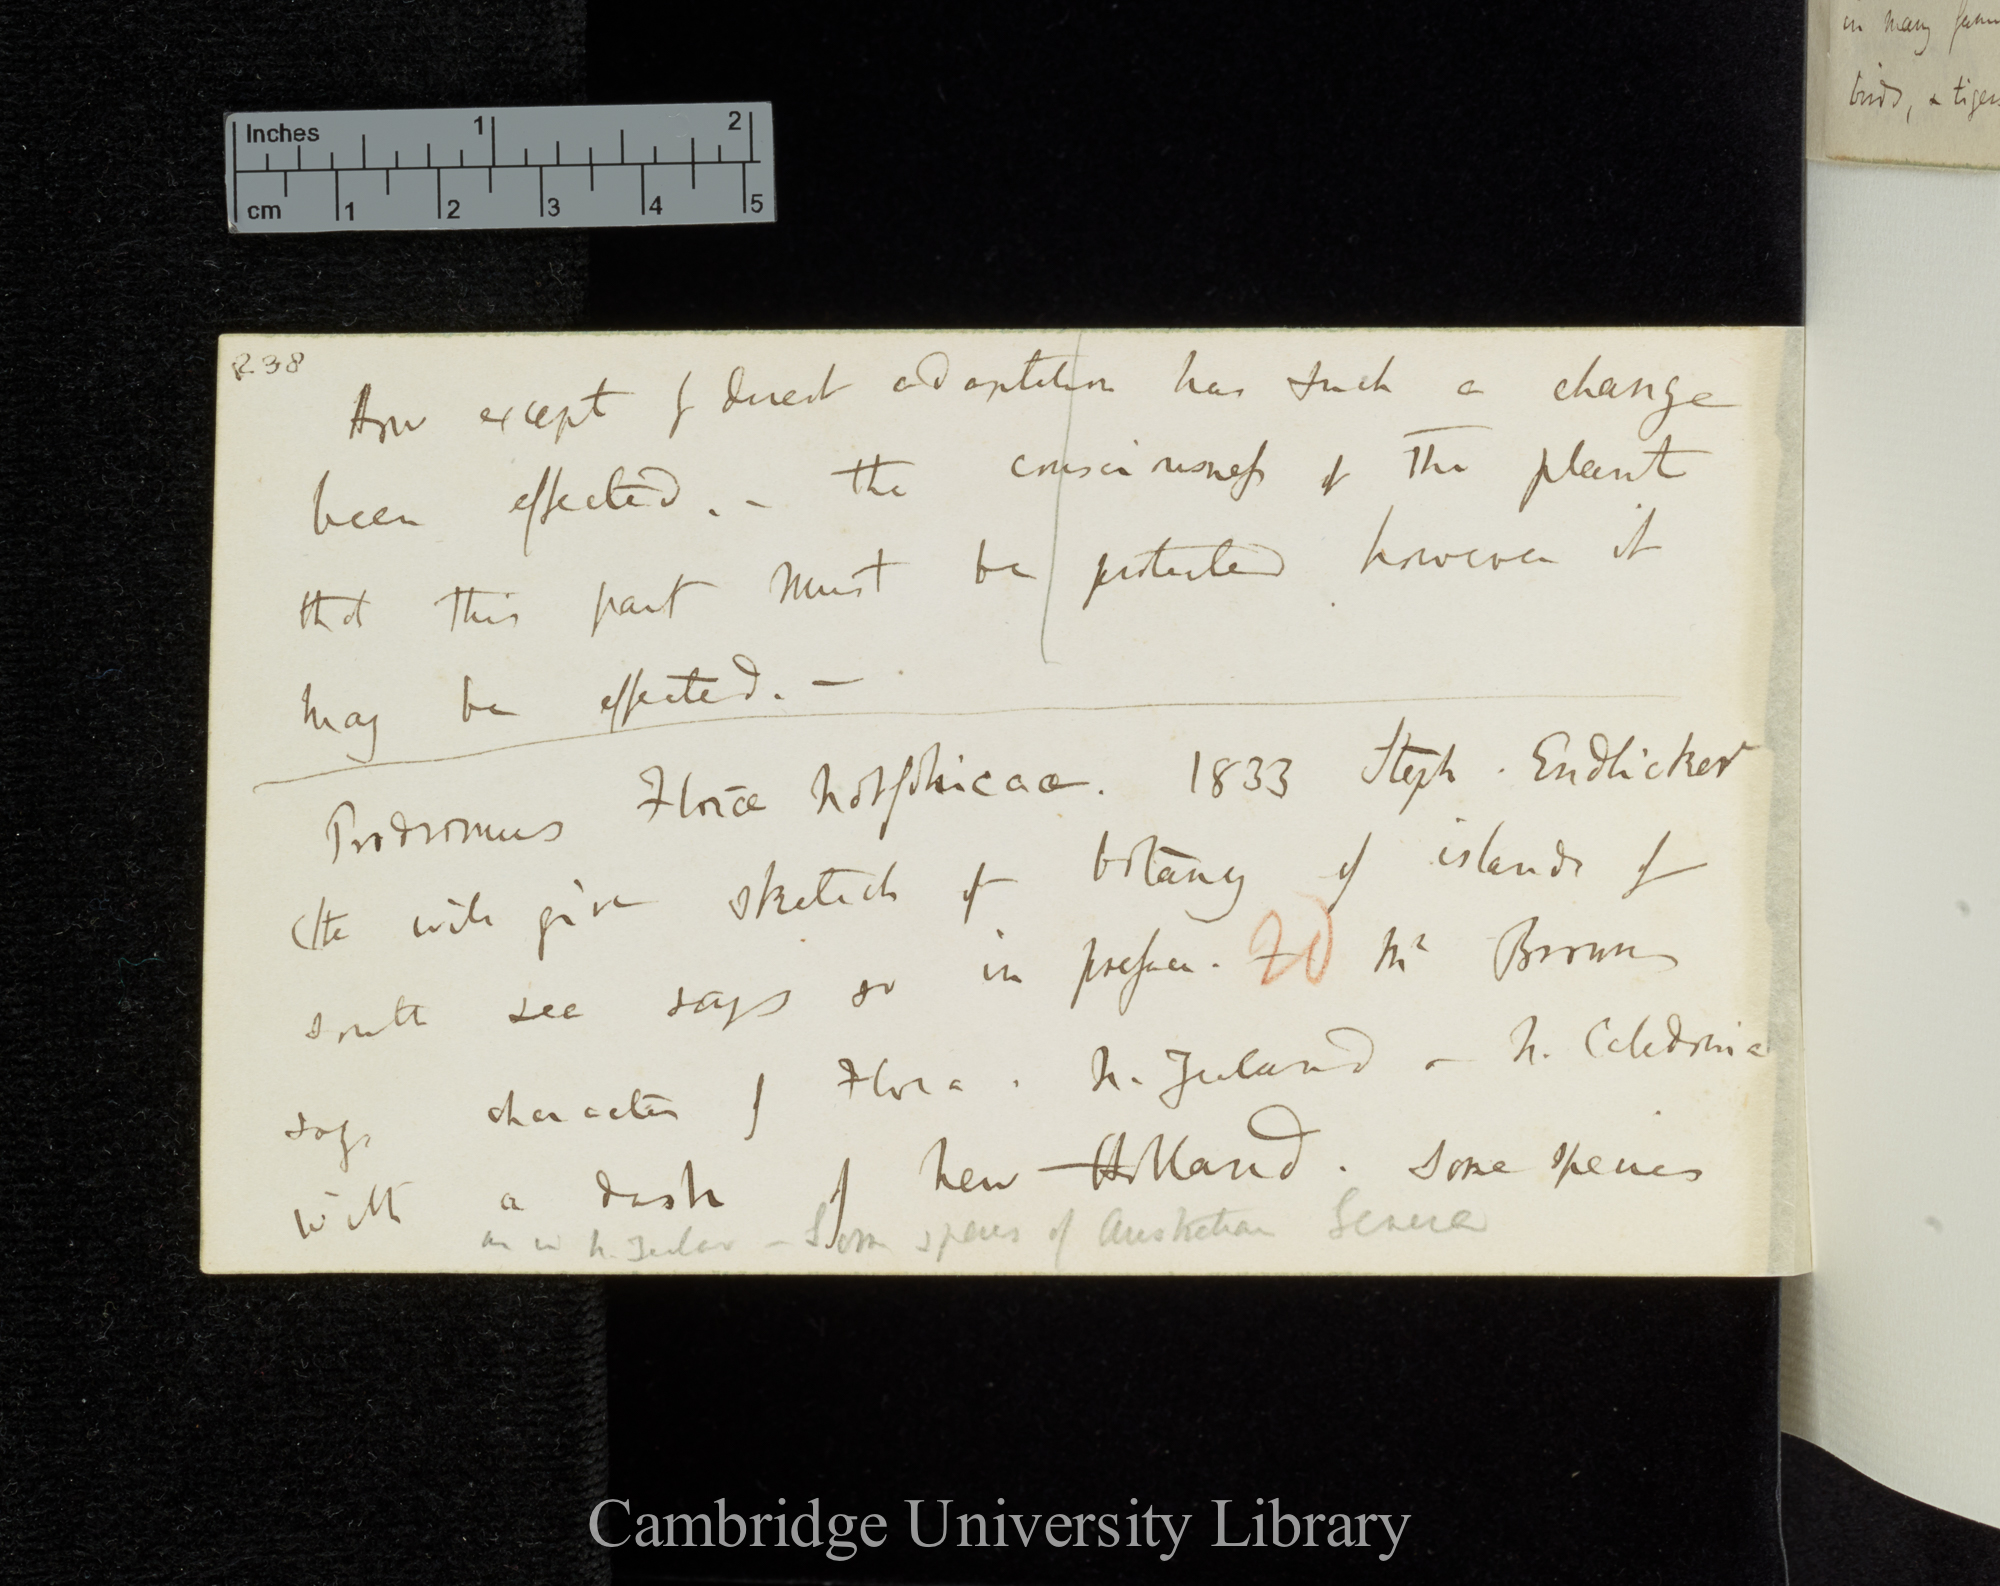 Inches 1 2
cm 1 2 3 4 5
in many
birds, & tigers
238
How except by direct adaptation has such a change
been effected. – the consciousness of the plant
that this part must be protected however it
may be effected. –
Prodromus Florae Norfolkicae. 1833 Steph. Endlicker
(He will give sketch of botany of islands of
south sea says so in preface. 20 Mr Brown
says character of Flora. N. Zealand & N. Caledonia
with a dash of New Holland. Some species
as in N. Zealand – Some species of Australian Genera
Cambridge University Library